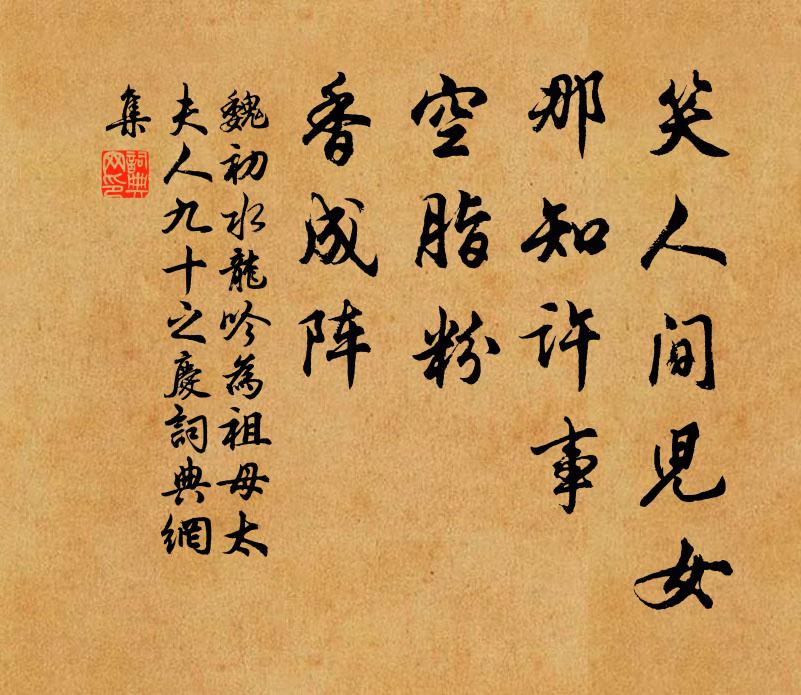 笑人间兒女
那知許事
空脂粉
香成阵
魏初水龍吟為祖母太
夫人九十之慶詞典網
集
詞典網印